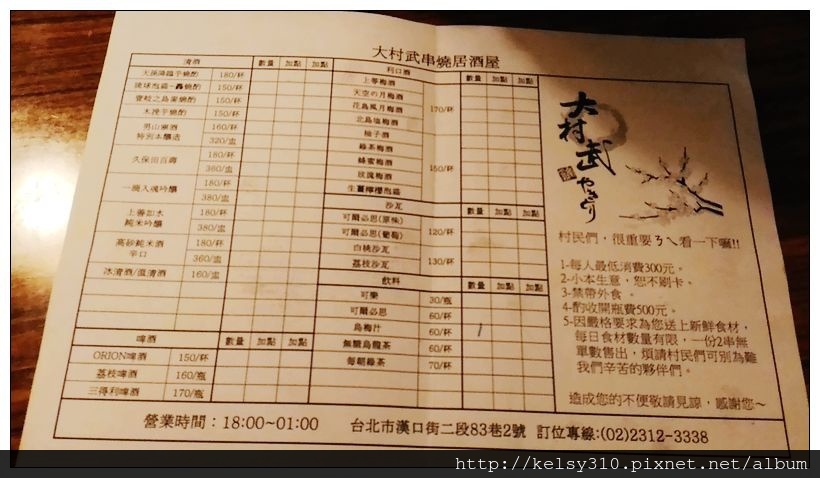 大村武串燒居酒屋
清酒 數量 加點 加點
天孫降臨芋燒酌 180/杯
琉球泡盛-轟燒酌 150/杯
壹岐之島麥燒酌 150/杯
木挽芋燒酌 150/杯
男山東酒 160/杯
特別本釀造 320/盅
久保田百壽 180/杯
360/盅
一滴入魂吟釀 180/杯
380/盅
上善如水 180/杯
純米吟釀 380/盅
高砂純米酒 180/杯
辛口 360/盅
冰清酒/溫清酒 160/盅
啤酒 數量 加點 加點
ORION啤酒 150/杯
荔枝啤酒 160/瓶
三得利啤酒 170/瓶
利口酒 數量 加點 加點
上等梅酒
天空の月梅酒
花鳥風月梅酒 170/杯
北島塩梅酒
柚子酒
綠茶梅酒
蜂蜜梅酒 150/杯
玫瑰梅酒
生薑檸檬泡盛
沙瓦 數量 加點 加點
可爾必思(原味) 120/杯
可爾必思(葡萄)
白桃沙瓦 130/杯
荔枝沙瓦
飲料 數量 加點 加點
可樂 30/瓶
可爾必思 60/杯
烏梅汁 60/杯
無糖烏龍茶 60/杯
每朝綠茶 70/杯
大村武
やきとり
村民們，很重要ㄋㄟ看一下喔!!
1-每人最低消費300元。
2-小本生意，恕不刷卡。
3-禁帶外食。
4-酌收開瓶費500元。
5-因嚴格要求為您送上新鮮食材，
每日食材數量有限，一份2串無
單數售出，煩請村民們可別為難
我們辛苦的夥伴們。
造成您的不便敬請見諒，感謝您～
營業時間：18:00~01:00 台北市漢口街二段83巷2號 訂位專線:(02)2312-3338
http://kelsy310.pixnet.net/album